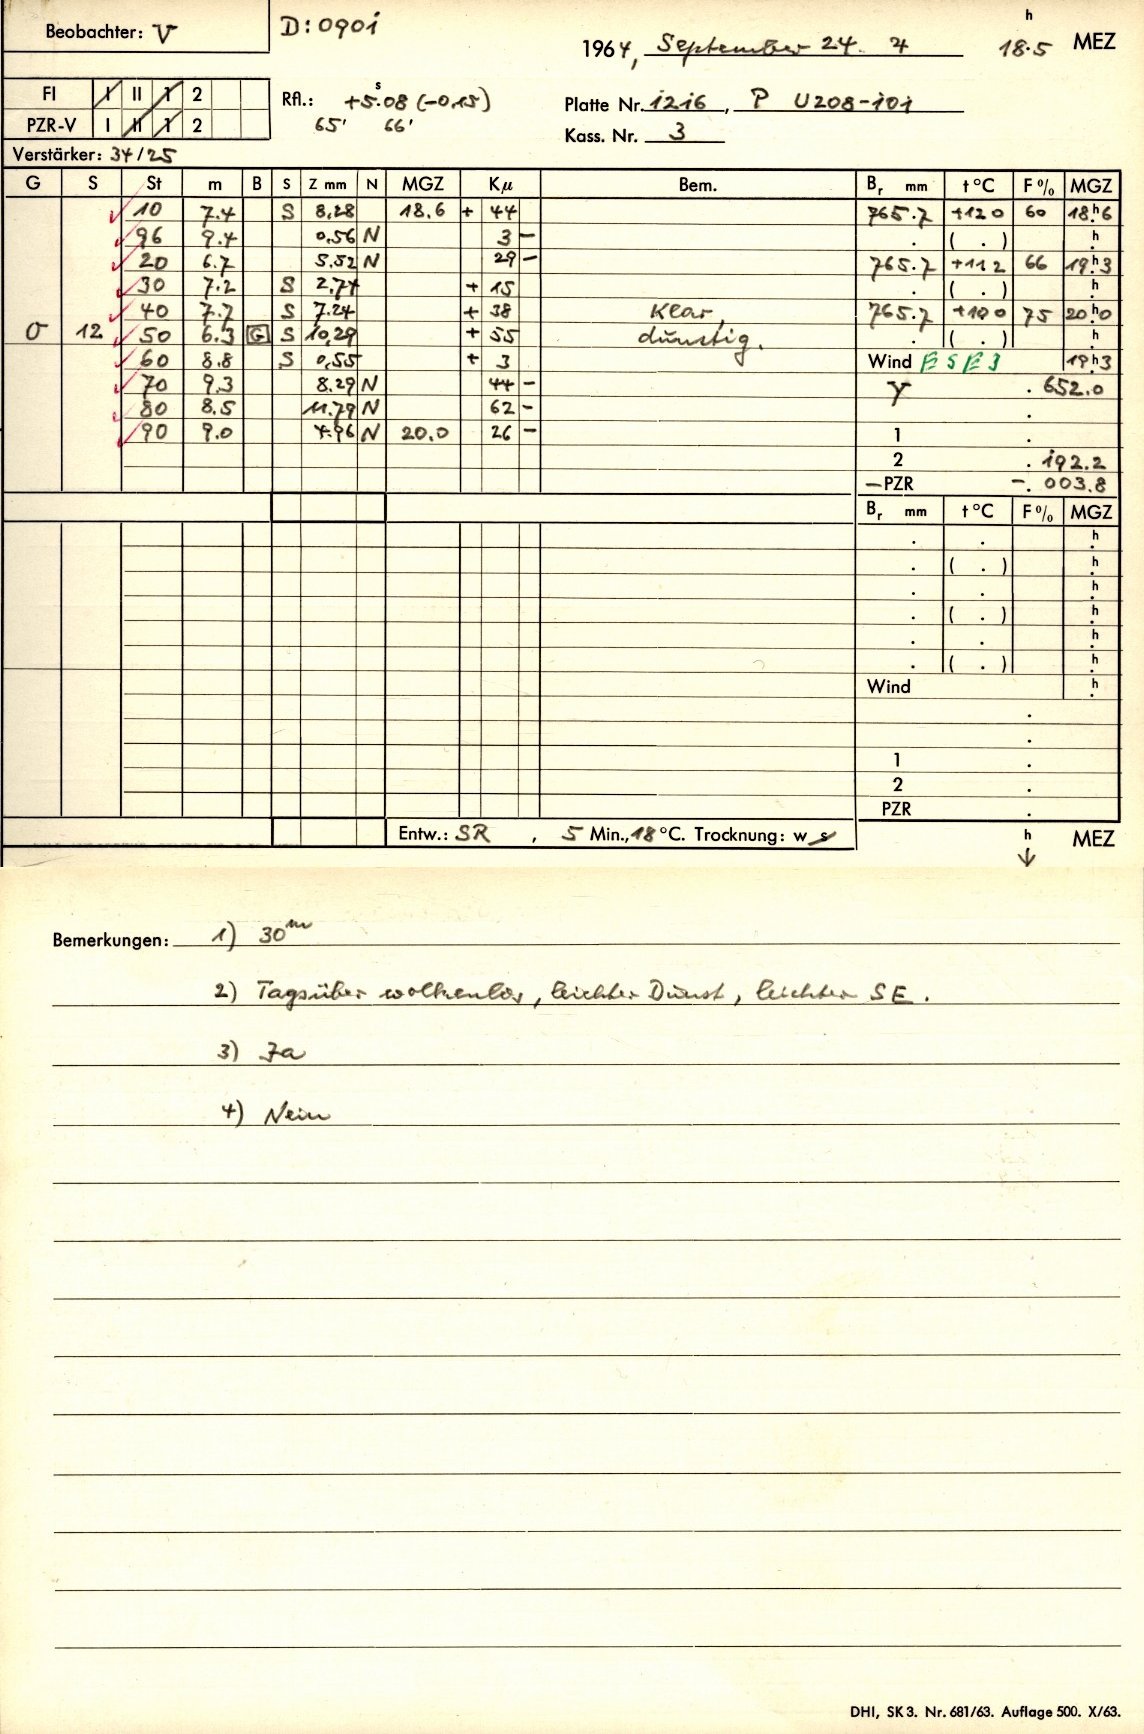 Beobachter: V D: 0901 h
1964, September 24. 4 18.5 MEZ
FI I II 1 2 Rfl.: +5.ˢ08 (-0.15) Platte Nr. 1216, P U208-101
PZR-V I II 1 2 65' 66' Kass. Nr. 3
Verstärker: 34/25
G S St m B S Z mm N MGZ Kμ Bem. Bᵣ mm t °C F % MGZ
10 7.4 S 8,28 18.6 + 44 765.7 +12 0 60 18ʰ.6
96 9.4 0,56 N 3 - . ( . ) ʰ.
20 6.7 5,52 N 29 - 765.7 +11 2 66 19ʰ.3
30 7.2 S 2,74 + 15 . ( . ) ʰ.
40 7.7 S 7.24 + 38 Klar, 765.7 75 20ʰ.0
O 12 50 6.3 G S 10,29 + 55 dunstig. . ( . ) ʰ.
60 8.8 S 0,55 + 3 Wind ESE 3 19ʰ.3
70 9.3 8.29 N 44 - γ . 652.0
80 8.5 11.79 N 62 - .
90 9.0 4.96 N 20.0 26 - 1 .
2 . 192.2
-PZR -. 003.8
Bᵣ mm t °C F % MGZ
. . ʰ.
. ( . ) ʰ.
. . ʰ.
. ( . ) ʰ.
. . ʰ.
. ( . ) ʰ.
Wind ʰ.
.
.
1 .
2 .
PZR .
Entw.: SR , 5 Min., 18 °C. Trocknung: w s h MEZ
Bemerkungen: 1) 30ᵐ
2) Tagsüber wolkenlos, leichter Dunst, leichter SE.
3) Ja
4) Nein
DHI, SK 3. Nr. 681/63. Auflage 500. X/63.